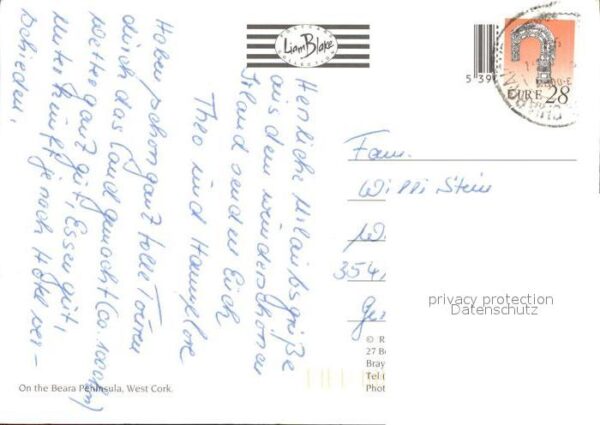 Herzliche Urlaubsgrüße
aus dem wunderschönen
Irland senden Euch
Theo und Hannelore
Haben schon ganz tolle Touren
durch das Land gemacht (ca. 1000 km)
Wetter ganz gut, Essen gut,
Unterkünfte je nach Hotel ver-
schieden.
Liam Blake
5 39
EIRE 28
Fam.
Willi Stein
354
Ger
privacy protection
Datenschutz
© R
27 Be
Bray
Tel (
Phot
On the Beara Peninsula, West Cork.